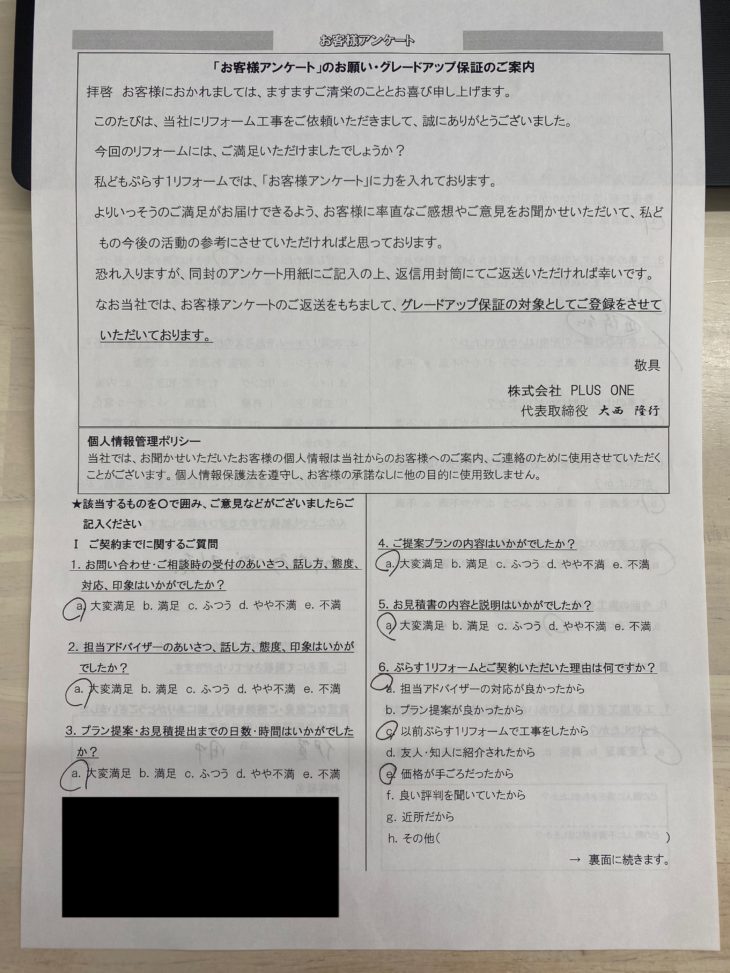 お客様アンケート
「お客様アンケート」のお願い・グレードアップ保証のご案内
拝啓 お客様におかれましては、ますますご清栄のこととお喜び申し上げます。
このたびは、当社にリフォーム工事をご依頼いただきまして、誠にありがとうございました。
今回のリフォームには、ご満足いただけましたでしょうか？
私どもぷらす1リフォームでは、「お客様アンケート」に力を入れております。
よりいっそうのご満足がお届けできるよう、お客様に率直なご感想やご意見をお聞かせいただいて、私ど
もの今後の活動の参考にさせていただければと思っております。
恐れ入りますが、同封のアンケート用紙にご記入の上、返信用封筒にてご返送いただければ幸いです。
なお当社では、お客様アンケートのご返送をもちまして、グレードアップ保証の対象としてご登録をさせて
いただいております。
敬具
株式会社 PLUS ONE
代表取締役 大西 隆行
個人情報管理ポリシー
当社では、お聞かせいただいたお客様の個人情報は当社からのお客様へのご案内、ご連絡のために使用させていただく
ことがございます。個人情報保護法を遵守し、お客様の承諾なしに他の目的に使用致しません。
★該当するものを〇で囲み、ご意見などがございましたらご
記入ください
Ⅰ ご契約までに関するご質問
1. お問い合わせ・ご相談時の受付のあいさつ、話し方、態度、
対応、印象はいかがでしたか？
a. 大変満足 b. 満足 c. ふつう d. やや不満 e. 不満
2. 担当アドバイザーのあいさつ、話し方、態度、印象はいかが
でしたか？
a. 大変満足 b. 満足 c. ふつう d. やや不満 e. 不満
3. プラン提案・お見積提出までの日数・時間はいかがでした
か？
a. 大変満足 b. 満足 c. ふつう d. やや不満 e. 不満
4. ご提案プランの内容はいかがでしたか？
a. 大変満足 b. 満足 c. ふつう d. やや不満 e. 不満
5. お見積書の内容と説明はいかがでしたか？
a. 大変満足 b. 満足 c. ふつう d. やや不満 e. 不満
6. ぷらす1リフォームとご契約いただいた理由は何ですか？
a. 担当アドバイザーの対応が良かったから
b. プラン提案が良かったから
c. 以前ぷらす1リフォームで工事をしたから
d. 友人・知人に紹介されたから
e. 価格が手ごろだったから
f. 良い評判を聞いていたから
g. 近所だから
h. その他( )
→ 裏面に続きます。